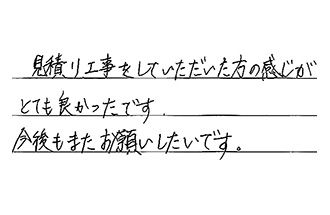 見積り工事をしていただいた方の感じが
とても良かったです.
今後もまたお願いしたいです。